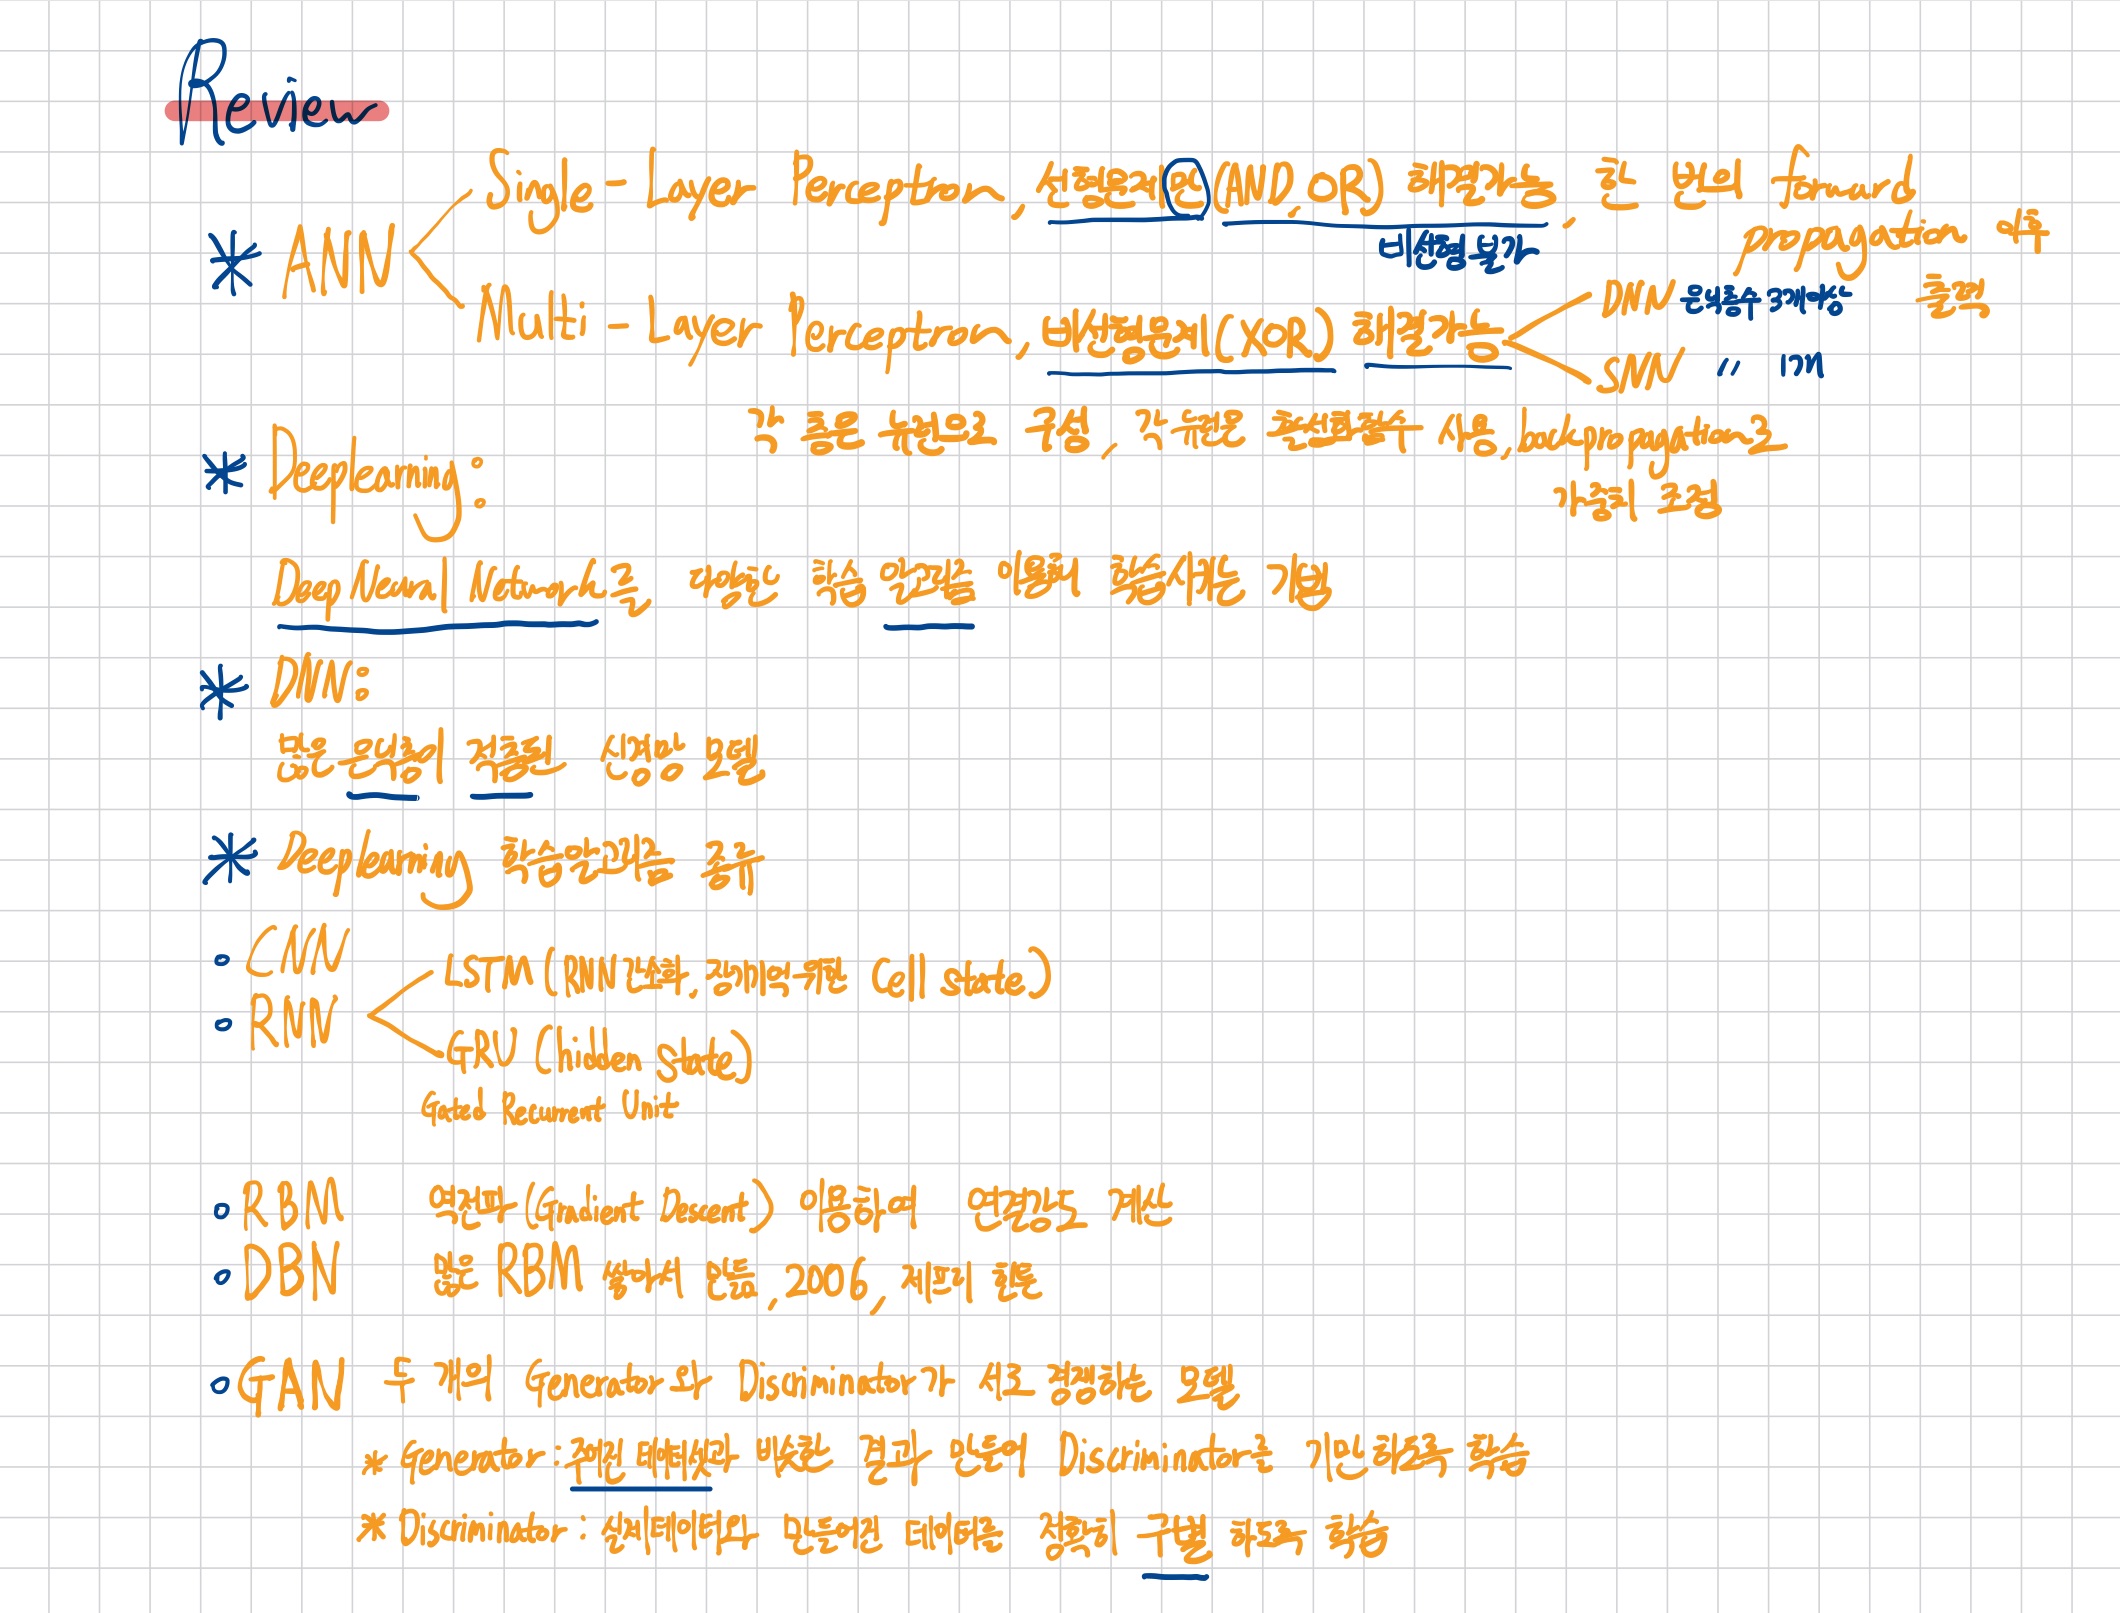 Review
* ANN
Single-Layer Perceptron, 선형문제만(AND, OR) 해결가능, 한 번의 forward
propagation 이후
출력
비선형 불가
Multi-Layer Perceptron, 비선형문제(XOR) 해결가능
DNN 은닉층수 3개이상
SNN " 1개
각 층은 뉴런으로 구성, 각 뉴런은 활성화함수 사용, backpropagation으로
가중치 조정
* Deeplearning:
Deep Neural Network를 다양한 학습 알고리즘 이용해 학습시키는 기법
* DNN:
많은 은닉층이 적층된 신경망 모델
* Deeplearning 학습알고리즘 종류
∘ CNN
∘ RNN
LSTM (RNN 간소화, 장기기억 위한 Cell state)
GRU (hidden state)
Gated Recurrent Unit
∘ RBM 역전파 (Gradient Descent) 이용하여 연결강도 계산
∘ DBN 많은 RBM 쌓아서 만듦, 2006, 제프리 힌튼
∘ GAN 두 개의 Generator와 Discriminator가 서로 경쟁하는 모델
* Generator: 주어진 데이터셋과 비슷한 결과 만들어 Discriminator를 기만하도록 학습
* Discriminator: 실제데이터와 만들어진 데이터를 정확히 구별 하도록 학습